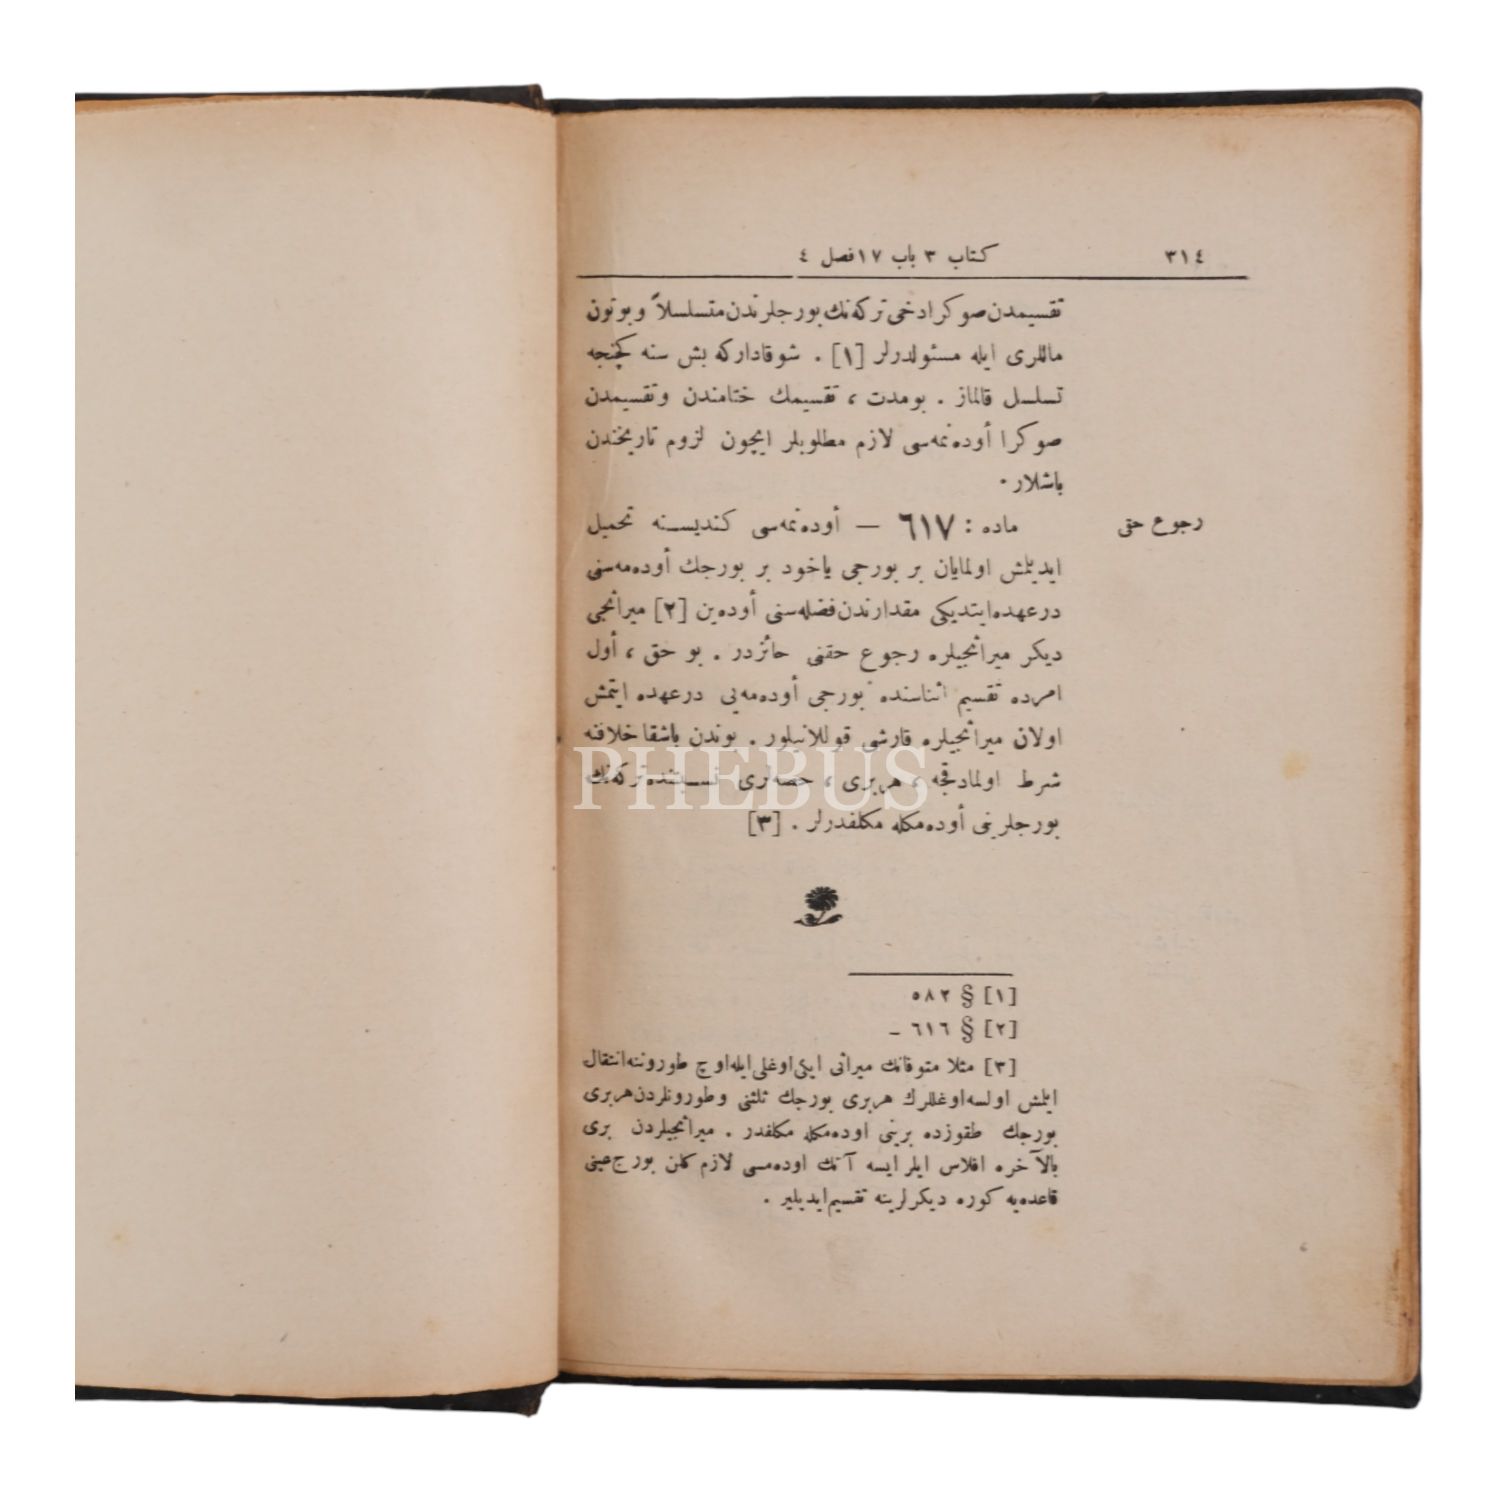 ٣١٤
كتاب ٣ باب ١٧ فصل ٤
تقسيمدن صوكرا دخى تركه‌نك بورجلرندن متسلسلاً و بوتون
ماللرى ايله مسئولدرلر [١] . شو قادار كه بش سنه كچنجه
تسلسل قالماز . بو مدت ، تقسيمك ختامندن و تقسيمدن
صوكرا أوده‌نمه‌سى لازم مطلوبلر ايچون لزوم تاريخندن
باشلار .
رجوع حقى
ماده : ٦١٧ — أوده‌نمه‌سى كنديسنه تحميل
ايديلمش اولمايان بر بورجى ياخود بر بورجك أوده‌مه‌سنى
درعهده ايتديكى مقدارندن فضله‌سنى أوده‌ين [٢] ميراثجى
ديكر ميراثجيلره رجوع حقنى حائزدر . بو حق ، أول
امرده تقسيم اثناسنده بورجى أوده‌مه‌يى درعهده ايتمش
اولان ميراثجيلره قارشى قوللانيلور . بوندن باشقا خلافنه
شرط اولمادقجه ، هربرى ، حصه‌لرى نسبتنده تركه‌نك
بورجلرينى أوده‌مكله مكلفدرلر . [٣]
PHEBUS
[١] § ٥٨٢
[٢] § ٦١٦ –
[٣] مثلا متوفانك ميراثى ايكى اوغلى ايله اوچ طورونه انتقال
ايتمش اولسه اوغللرك هربرى بورجك ثلثنى و طورونلردن هربرى
بورجك طقوزده برينى اوده‌مكله مكلفدر . ميراثجيلردن برى
بالآخره افلاس ايلر ايسه آنك اوده‌مسى لازم كلن بورج عينى
قاعده‌يه كوره ديكرلرينه تقسيم ايديلير .